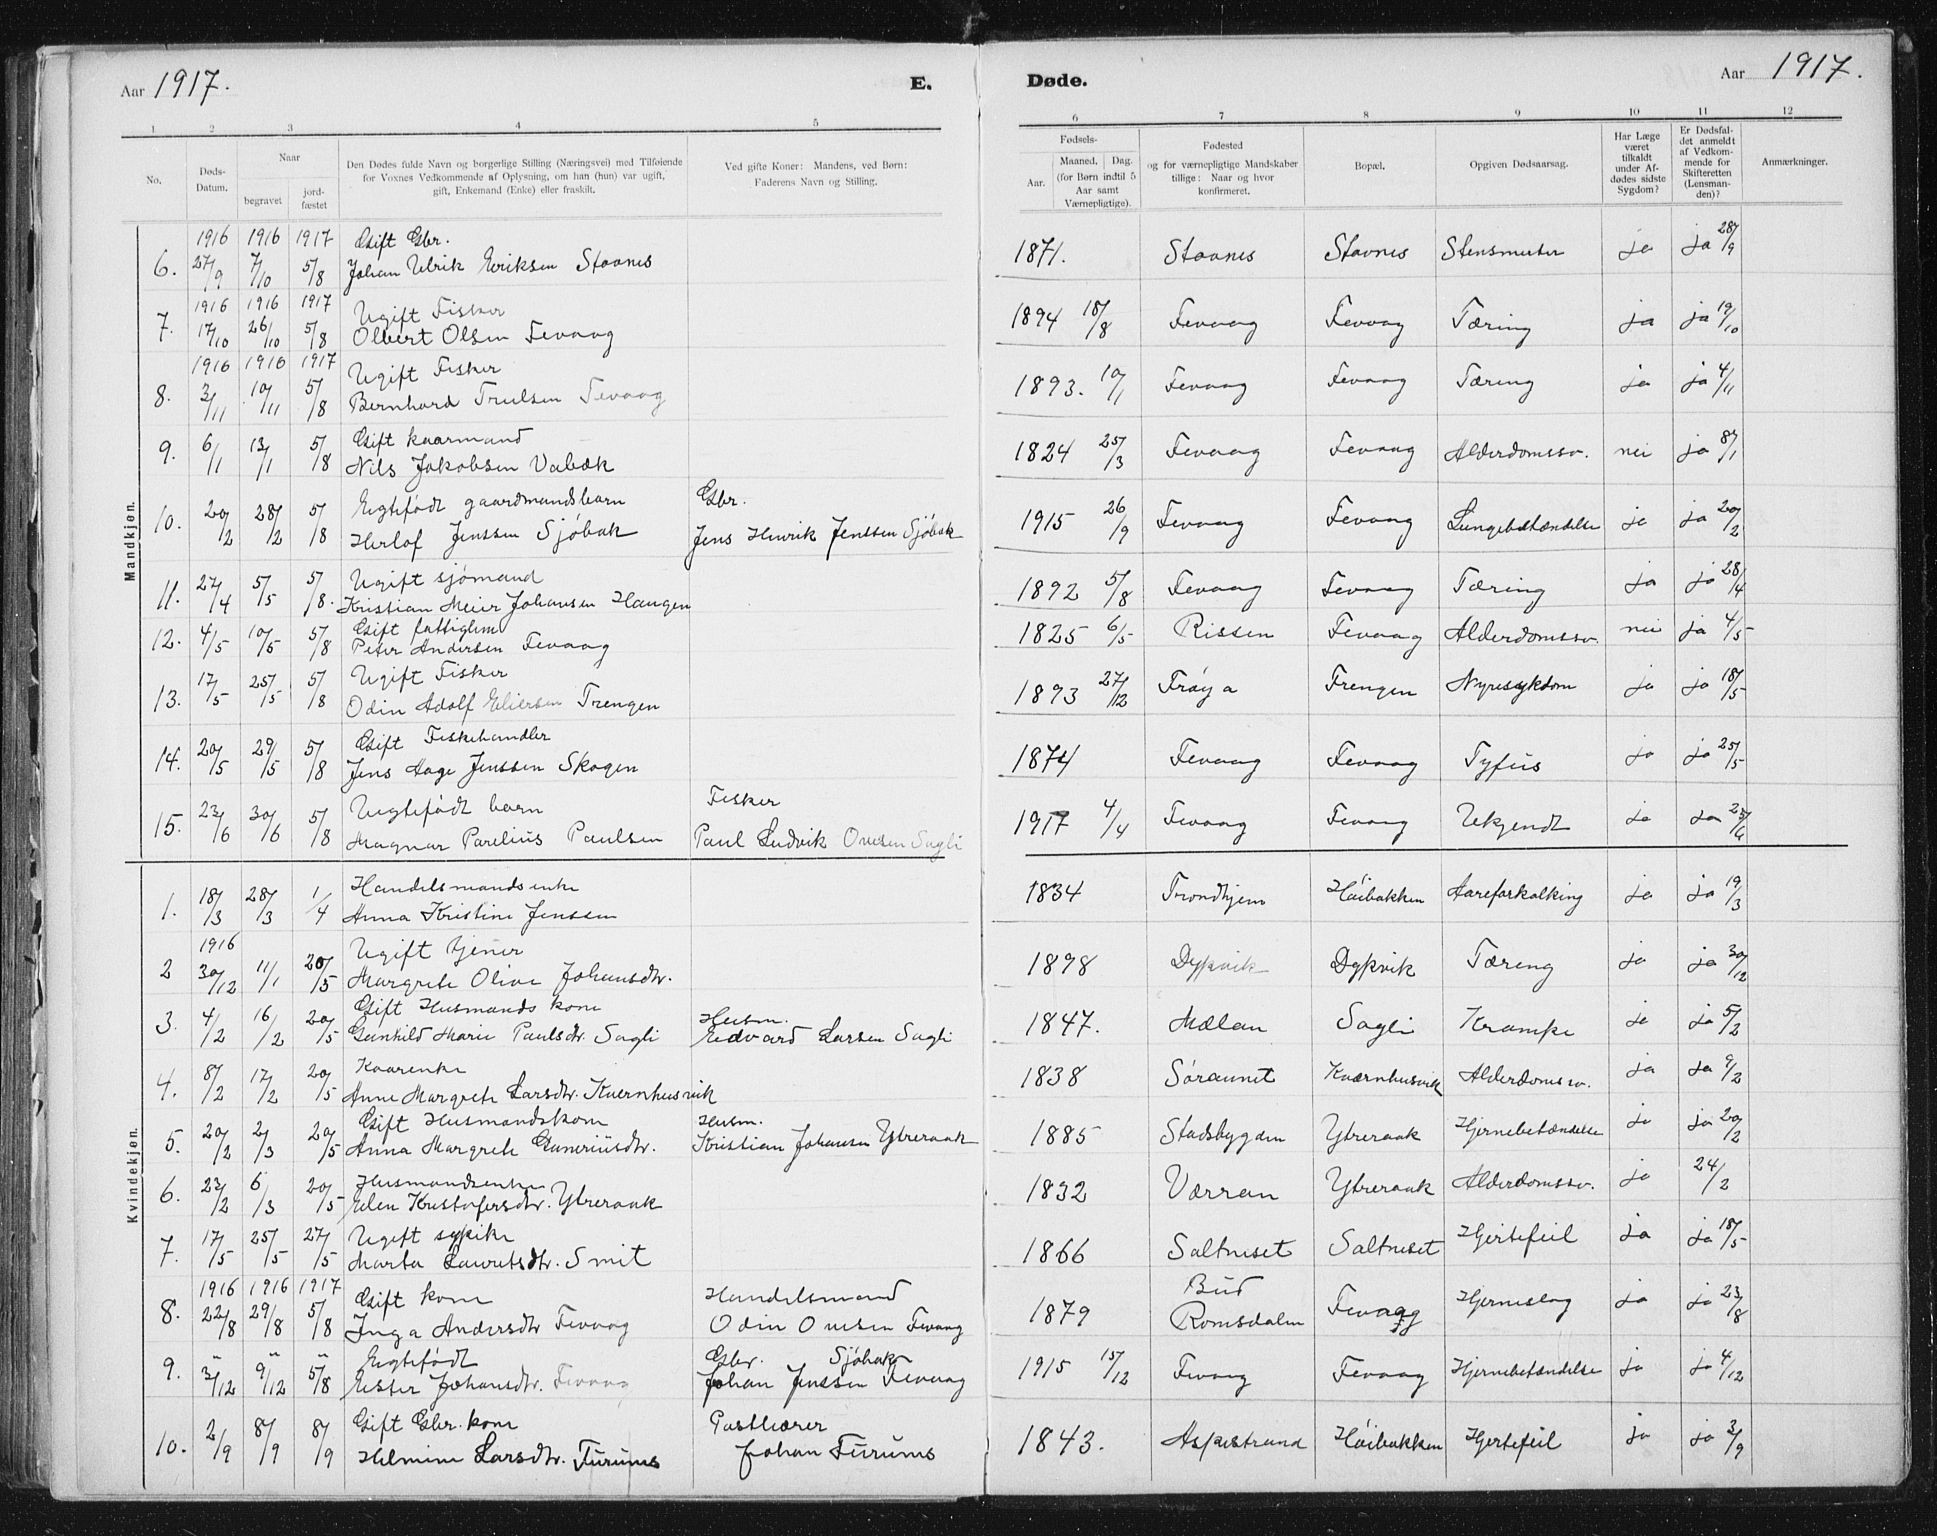 Aar 1917. E. Døde. Aar 1917.
1 2 3 4 5 6 7 8 9 10 11 12
No. Døds-Datum. Naar begravet jordfæstet Den Dødes fulde Navn og borgerlige Stilling (Næringsvei) med Tilføiende for Voxnes Vedkommende af Oplysning, om han (hun) var ugift, gift, Enkemand (Enke) eller fraskilt. Ved gifte Koner: Mandens, ved Børn: Faderens Navn og Stilling. Fødsels- Aar. Maaned, Dag. (for Børn indtil 5 Aar samt Værnepligtige). Fødested og for værnepligtige Mandskaber tillige: Naar og hvor konfirmeret. Bopæl. Opgiven Dødsaarsag. Har Læge været tilkaldt under Afdødes sidste Sygdom? Er Dødsfaldet anmeldt af Vedkommende for Skifteretten (Lensmanden)? Anmærkninger.
Mandkjøn.
1916 1916 1917 Gift Gbr.
6. 27/9 7/10 5/8 Johan Ulrik Eriksen Stavnes 1871. Stavnes Stavnes ja ja 28/9
1916 1916 1917 Ugift Fisker
7. 17/10 26/10 5/8 Olbert Olsen Fevaag 1894 18/8 Fevaag Fevaag Tæring ja ja 19/10
1916 1916 1917 Ugift Fisker
8. 3/11 10/11 5/8 Bernhard Trulsen Fevaag 1893. 10/1 Fevaag Fevaag Tæring ja ja 4/11
Gift kaarmand
9. 6/1 13/1 5/8 Nils Jakobsen Vabæk 1824 25/3 Fevaag Fevaag Alderdomssv. nei ja 8/1
Egtefødt gaardmandsbarn Gbr.
10. 20/2 28/2 5/8 Herlof Jenssen Sjøbak Jens Henrik Jenssen Sjøbak 1915 26/9 Fevaag Fevaag Lungebetændelse ja ja 20/2
Ugift sjømand
11. 27/4 5/5 5/8. Kristian Meier Johansen Haugen 1892 5/8 Fevaag Fevaag Tæring ja ja 28/4
Gift fattiglem
12. 4/5 10/5 5/8 Peter Andersen Fevaag 1825 6/5 Rissen Fevaag Alderdomssv. nei ja 4/5
Ugift Fisker
13. 17/5 25/5 5/8 Odin Adolf Eliersen Trengen 1893 27/12 Frøya Frengen Nyresykdom ja ja 18/5
Gift Fiskehandler
14. 20/5 29/5 5/8 Jens Hage Jenssen Skogen 1874 Fevaag Fevaag Tyfus ja ja 25/5
Uegtefødt barn Fisker
15. 23/6 30/6 5/8 Magnar Parelius Paulsen Paul Ludvik Ovesen Sagli 1917 4/4 Fevaag Fevaag Ukjendt ja ja 25/6
Kvindekjøn.
Handelsmandsenke
1. 18/3 28/3 1/4 Anna Kristine Jenssen 1834 Trondhjem Høibakken Aareforkalking ja ja 19/3
1916 Ugift tjener
2 30/12 11/1 20/5 Margrete Olive Johansdtr. 1898 Dypvik Dypvik Tæring ja ja 30/12
Gift Husmands kone Husm.
3. 4/2 16/2 20/5 Gunhild Marie Paulsdtr. Sagli Edvard Larsen Sagli 1847. Mælan Sagli Krampe ja ja 5/2
Kaarenke
4. 8/2 17/2 20/5 Anne Margrete Larsdtr. Kvernhusvik 1838 Søraunet Kværnhusvik Alderdomssv. ja ja 9/2
Gift Husmandskone Husm.
5. 20/2 2/3 20/5 Anna Margrete Guneriusdtr. Kristian Johansen Ytreraak 1885 Stadsbygden Ytreraak Hjernebetændelse ja ja 20/2
Husmandsenke
6. 23/2 6/3 20/5 Elen Kristofersdtr. Ytreraak 1832 Værran Ytreraak Alderdomssv. ja 24/2
Ugift sypike
7. 17/5 25/5 27/5 Marta Lauritsdtr. Smit 1866 Saltneset Saltneset Hjertefeil ja ja 18/5
1916 1916 1917 Gift kone Handelsmand Bud
8. 22/8 29/8 5/8 Inga Andersdtr Fevaag Odin Ovesen Fevaag 1879 Romsdalen Fevaag Hjerneslag ja ja 23/8
" " " Egtefødt Gbr. Sjøbak
9. 3/12 9/12 5/8 Ester Johansdtr. Fevaag Johan Jenssen Fevaag 1915 15/12 Fevaag Fevaag Hjernebetændelse ja ja 4/12
Gift Gbr. kone Postbærer
10. 2/9 8/9 8/9 Helmine Larsdtr. Furunes Johan Furunes 1843. Aspestrand Høibakken Hjertefeil ja ja 3/9